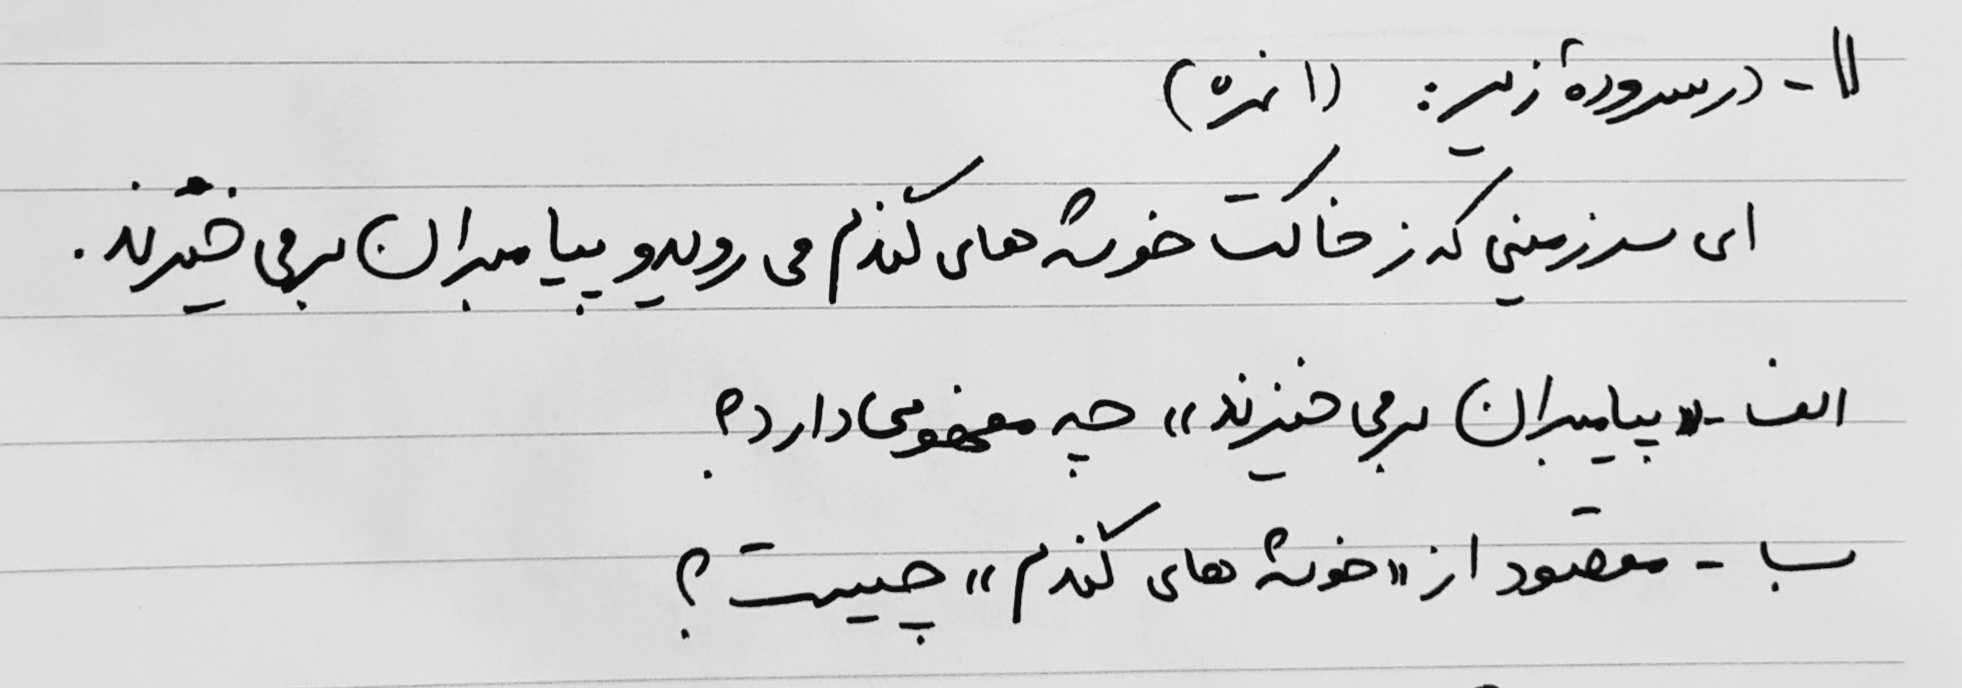 ۱۱- در سرودهٔ زیر: (۱ نمره)
ای سرزمینی که ز خاکت خوشه های گندم می روید و پیامبران برمی خیزند.
الف - «پیامبران برمی خیزند» چه مفهومی دارد؟
ب - مقصود از «خوشه های گندم» چیست؟